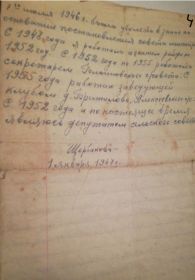 С июля 1946 г. была уволена в запас на
основании постановления совета министр
С 1948 года я работала
1952 год. С 1952 года по 1955 работала
секретарем сельсовета. С
1955 года работаю заведующей
клубом д.
С 1952 года и по настоящее время
являюсь депутатом сельского совета
Щербакова
1 января 1967 г.
4